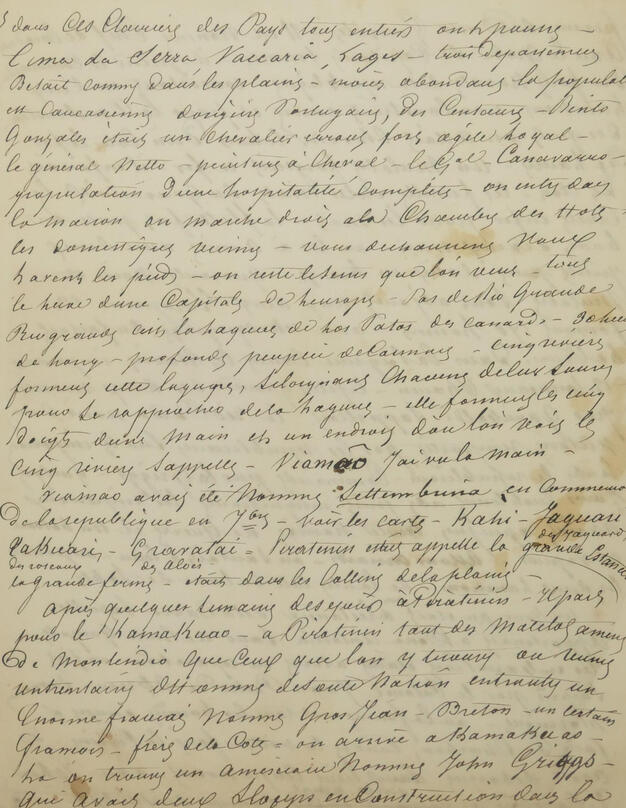 dans ces Clairières des Pays tous entiers ont
Cima da Serra Vaccaria, Lages - trois départements
Betail comme dans les plaines - moins abondant la populat
est Caucasienne d'origine Portugaise, des Centaures - Bento
Gonzales était un chevalier errant fort agile loyal -
le général Netto - peinture à Cheval - le Gal Canavarro -
population d'une hospitalité complete - on entre dans
la maison on marche droit a la Chambre des Hotes -
les domestiques viennent - vous dechaussent Nous
lavent les pieds - on reste le tems que l'on veut - tous
le luxe d'une Capitale de l'europe - Pas de Rio Grande
Rio grande c'est la lagune de los Patos des canards -
de long - profonde peu - cinq rivières
forment cette lagune, s'eloignant chacune de leur source
pour se rapprocher de la lagune - elle forment les cinq
doigts d'une main et un endroit d'ou l'on vois les
cinq rivière s'appelle - Viamão J'ai vu la main -
Viamao avait été Nommé Settembrina en Commemo
de la republique en 7bre - voir les carte - Kahi - Jaguare
des Jaguard
- Gravatai = Piratinin etait appelle la grande Estan
des roseaux des aloës
la Grande ferme - etait dans les Collines de la plaine -
Après quelques semaines de sejour à Piratinin - Il part
pour le Kamakuao - a Piratinin tant des Matelots amene
de Montevideo que ceux que l'on y trouve on reunis
une trentaine d'Hommes de toute Nation entr'autres un
Enorme français Nommé Gros Jean - Breton - un certain
François - frère de la Cote = on arrive a Kamakuao -
la on trouve un américain Nommé John Griggs -
que avait deux Sloops en Construction dans la